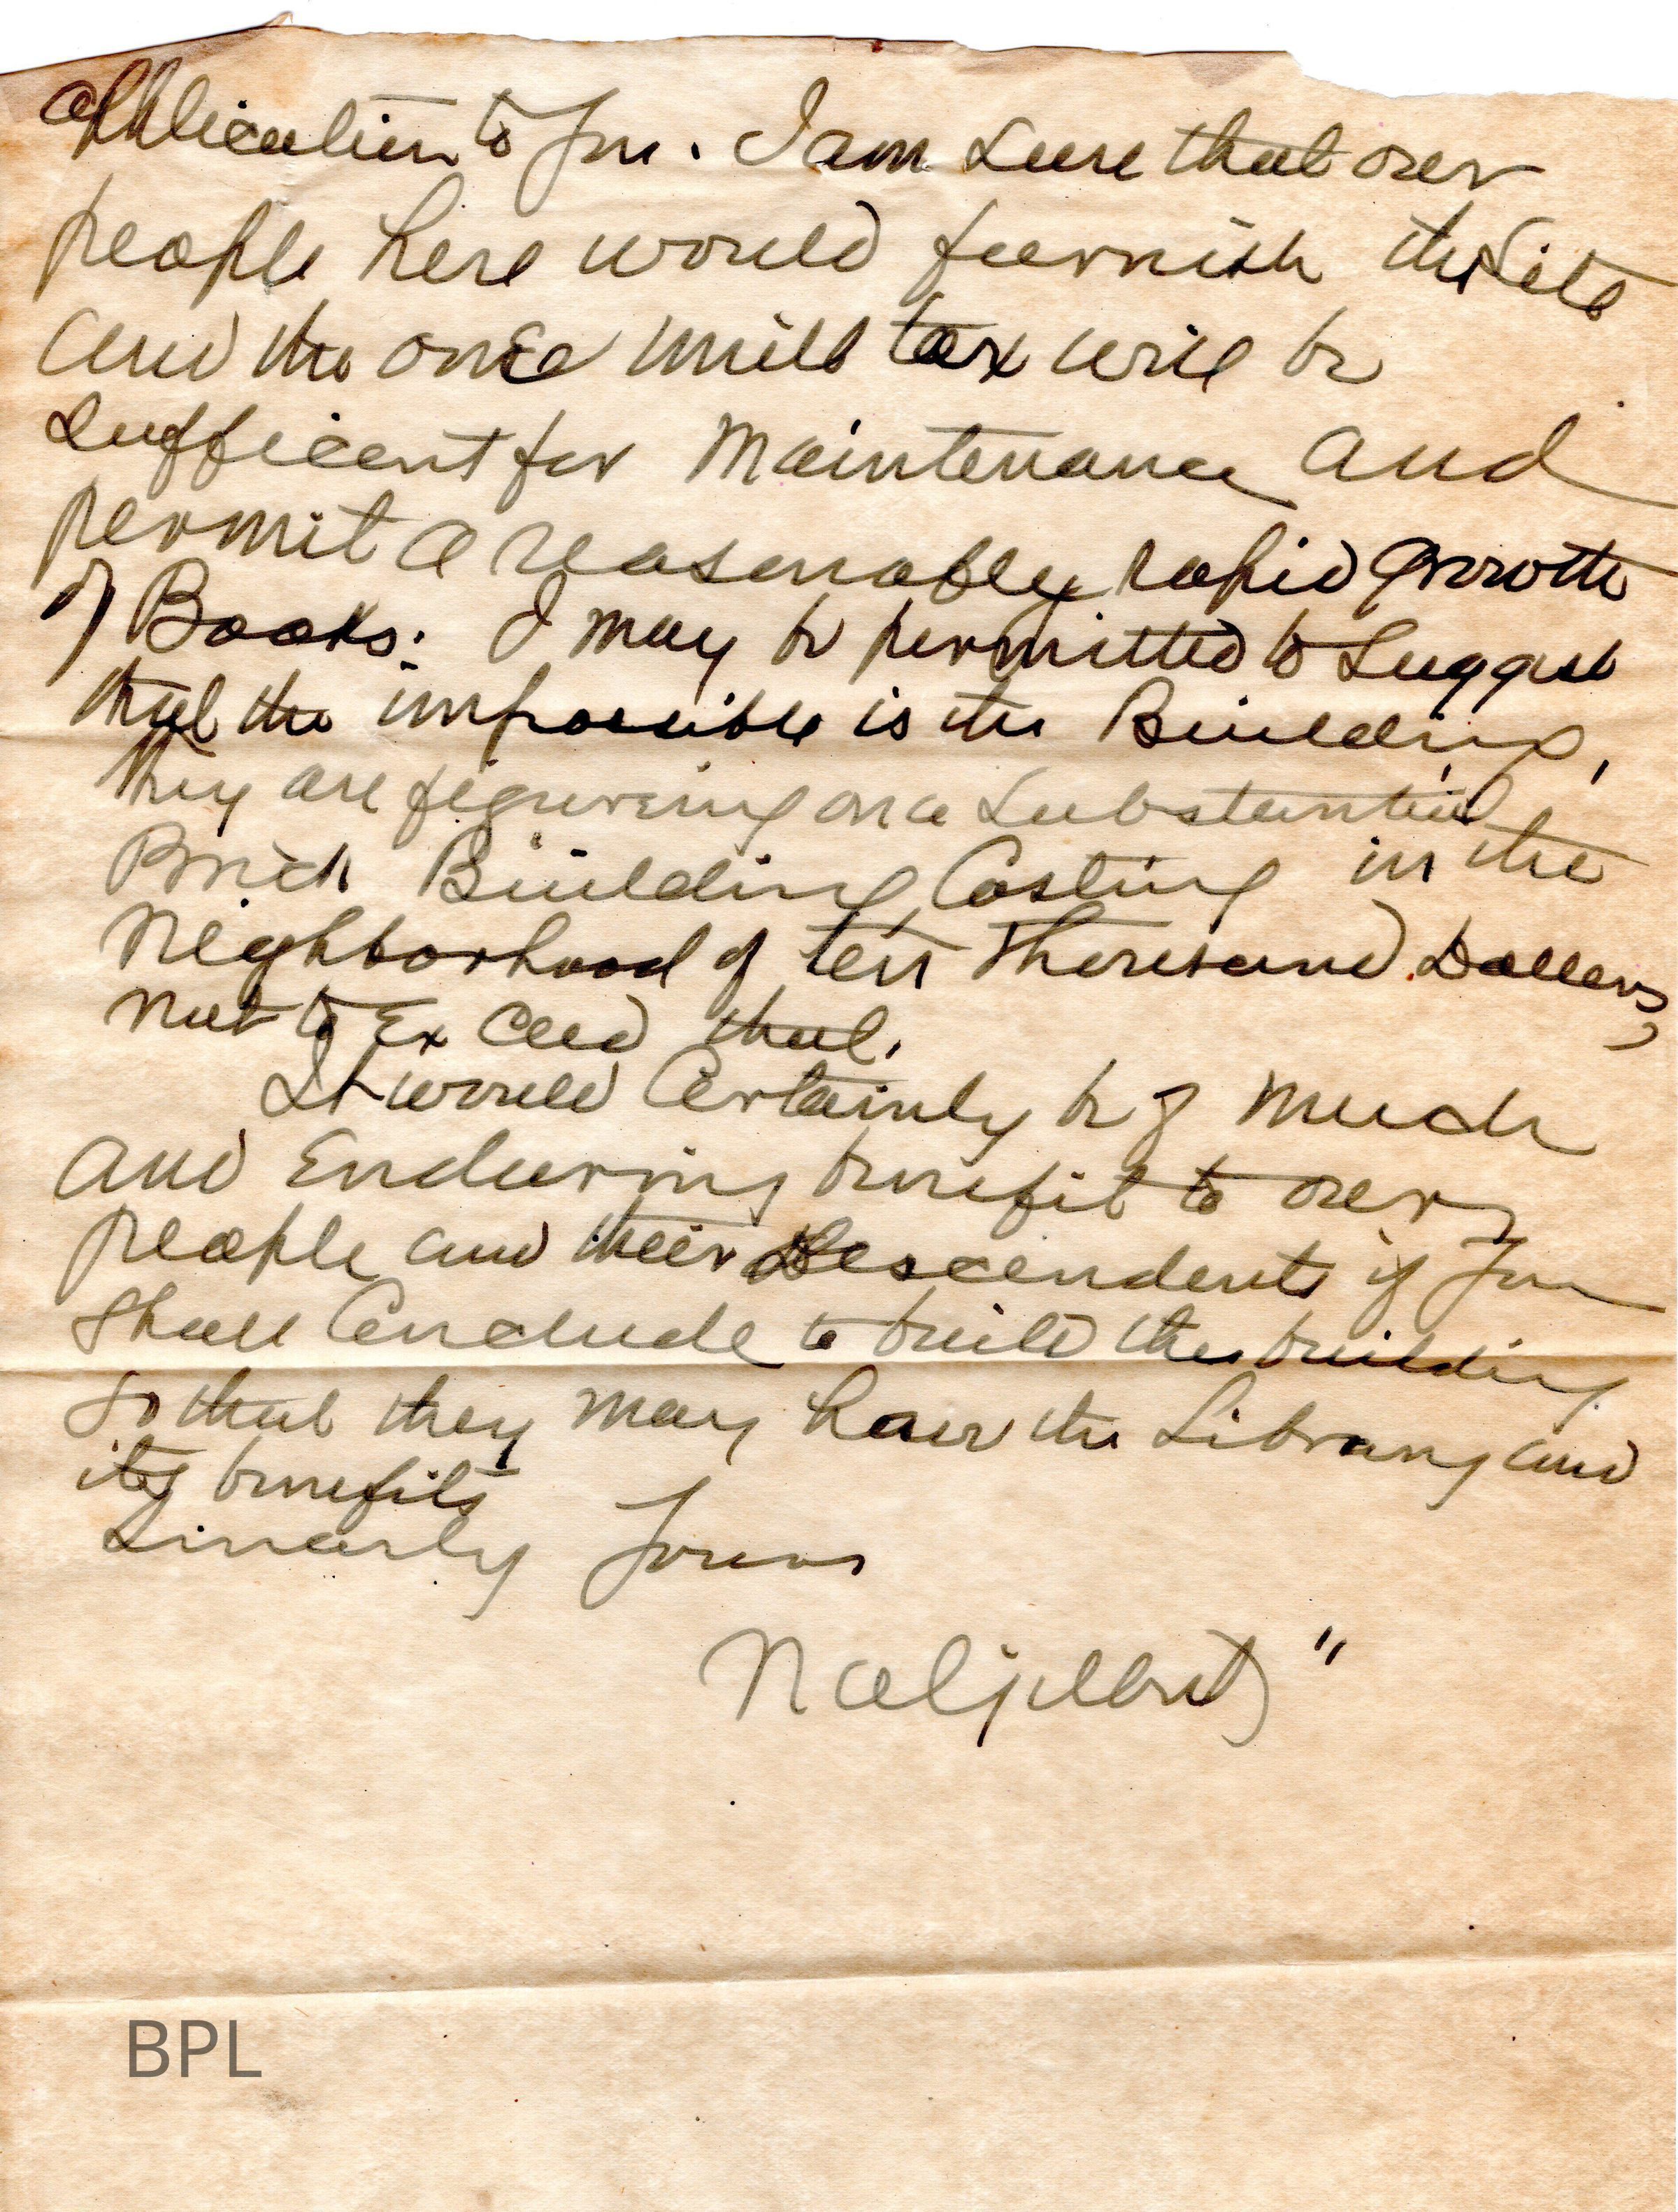 application to you. I am sure that our
people here would furnish the site
and the one mill tax will be
sufficent for Maintenance and
permit a reasonably rapid growth
of Books. I may be permitted to suggest
that the impossible is the Building,
they are figureing on a substantial
Brick Building Costing in the
Neighborhood of ten Thousand Dollars,
not to Exceed that.
It would Certainly be of much
and Enduring benefit to our
people and their Descendents if you
shall Conclude to build the building
so that they may have the Library and
its benefits
Sincerly Yours
BPL